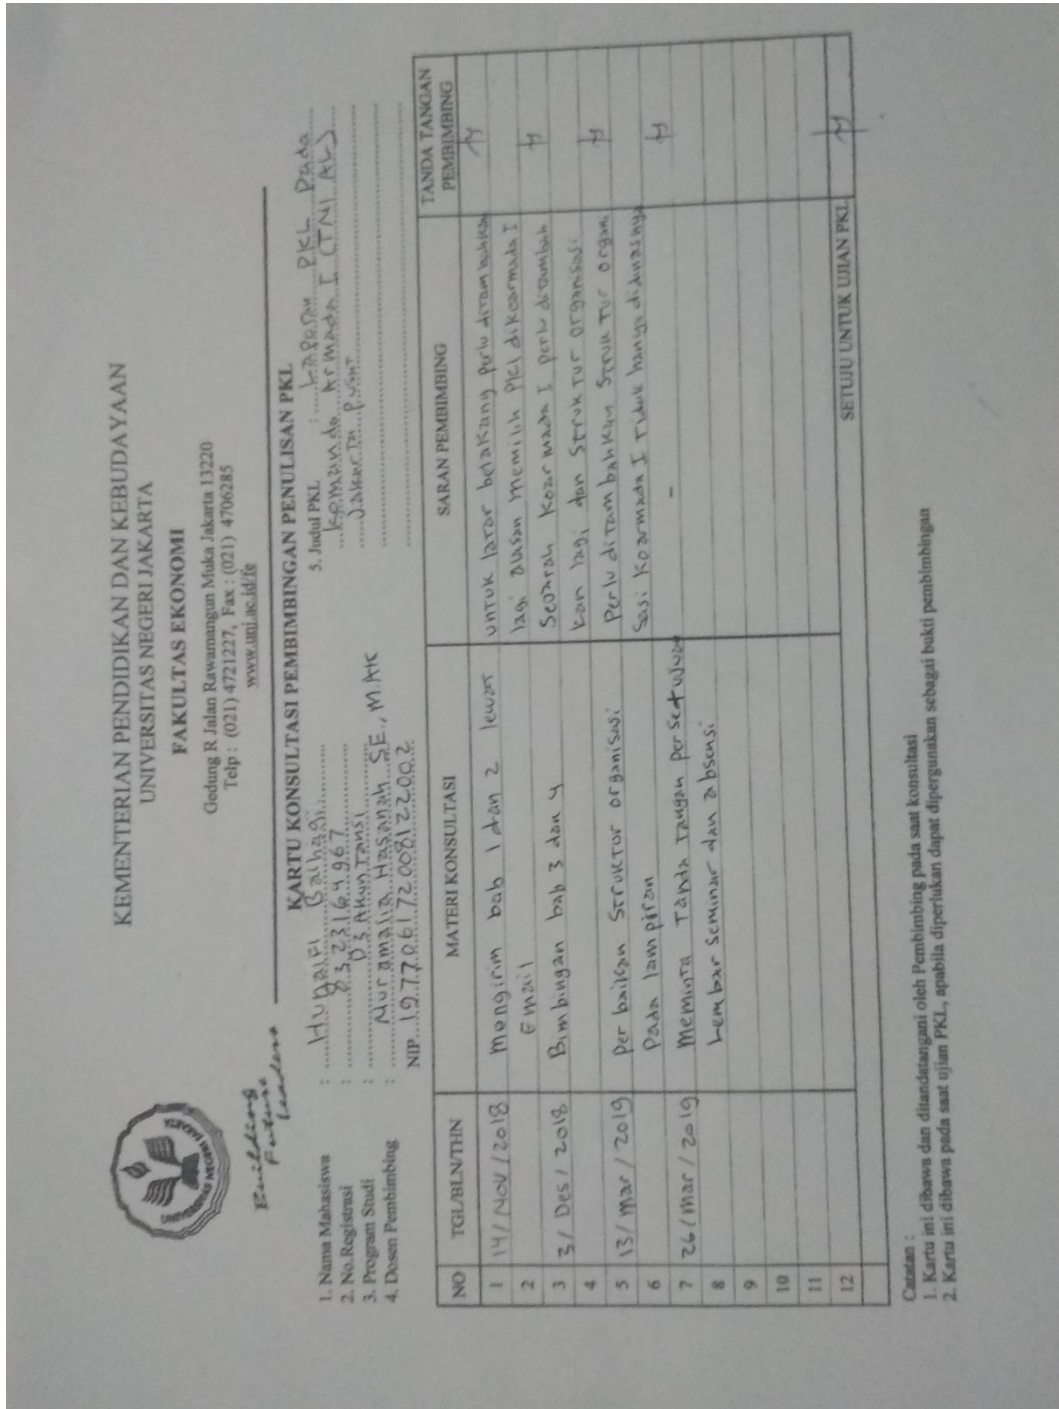 KEMENTERIAN PENDIDIKAN DAN KEBUDAYAAN
UNIVERSITAS NEGERI JAKARTA
FAKULTAS EKONOMI
Gedung R Jalan Rawamangun Muka Jakarta 13220
Telp : (021) 4721227, Fax : (021) 4706285
www.unj.ac.id/fe
Building
Future
Leaders
KARTU KONSULTASI PEMBIMBINGAN PENULISAN PKL
1. Nama Mahasiswa : Hunaifi Baihaqi
2. No.Registrasi : 8323164967
3. Program Studi : D3 Akuntansi
4. Dosen Pembimbing : Nuramalia Hasanah SE., M.AK
NIP. 197706172008122002
5. Judul PKL : Laporan PKL Pada
Komando Armada I (TNI AL)
Jakarta Pusat
NO TGL/BLN/THN MATERI KONSULTASI SARAN PEMBIMBING TANDA TANGAN PEMBIMBING
1 14/Nov/2018 Mengirim bab 1 dan 2 lewat untuk latar belakang perlu ditambahkan
2 Email lagi alasan memilih PKL dikoarmada I
3 3/Des/2018 Bimbingan bab 3 dan 4 Sejarah Koarmada I perlu ditambah
4 kan lagi dan Struktur organisasi
5 13/Mar/2019 Perbaikan Struktur organisasi Perlu ditambahkan Struktur organi
6 Pada lampiran Sasi Koarmada I Tidak hanya didinasnya
7 26/Mar/2019 Meminta Tanda Tangan Persetujuan -
8 Lembar Seminar dan absensi
9
10
11
12
SETUJU UNTUK UJIAN PKL
Catatan :
1. Kartu ini dibawa dan ditandatangani oleh Pembimbing pada saat konsultasi
2. Kartu ini dibawa pada saat ujian PKL, apabila diperlukan dapat dipergunakan sebagai bukti pembimbingan